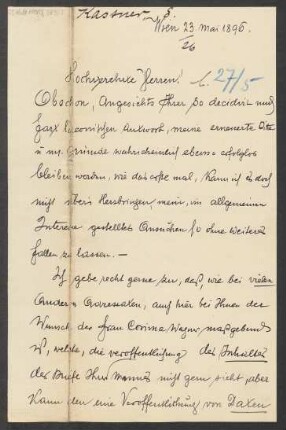 Kassner
Wien 23 Mai 1896.
26
Hochverehrte Herren!
b. 27/5
Obschon, Angesichts Ihrer so decidirt und
ganz Antwort, meine erneuerte Bitte
u. Gründe wahrscheinlich ebenso erfolglos
bleiben werden, wie das erste mal, kann ich es doch
nicht übers Herz bringen, mein, im allgemeinen
Interesse gestelltes Ansuchen so ohne Weiteres
fallen zu lassen. —
Ich gebe recht gerne zu, daß, wie bei vielen
Anderen, auch hier bei Ihnen der
Wunsch, der Frau Cosima Wagner, maßgebend
ist, welche, die Veröffentlichung des Inhaltes
der Briefe Ihres Mannes nicht gern sieht, aber
kann den eine Veröffentlichung von Daten